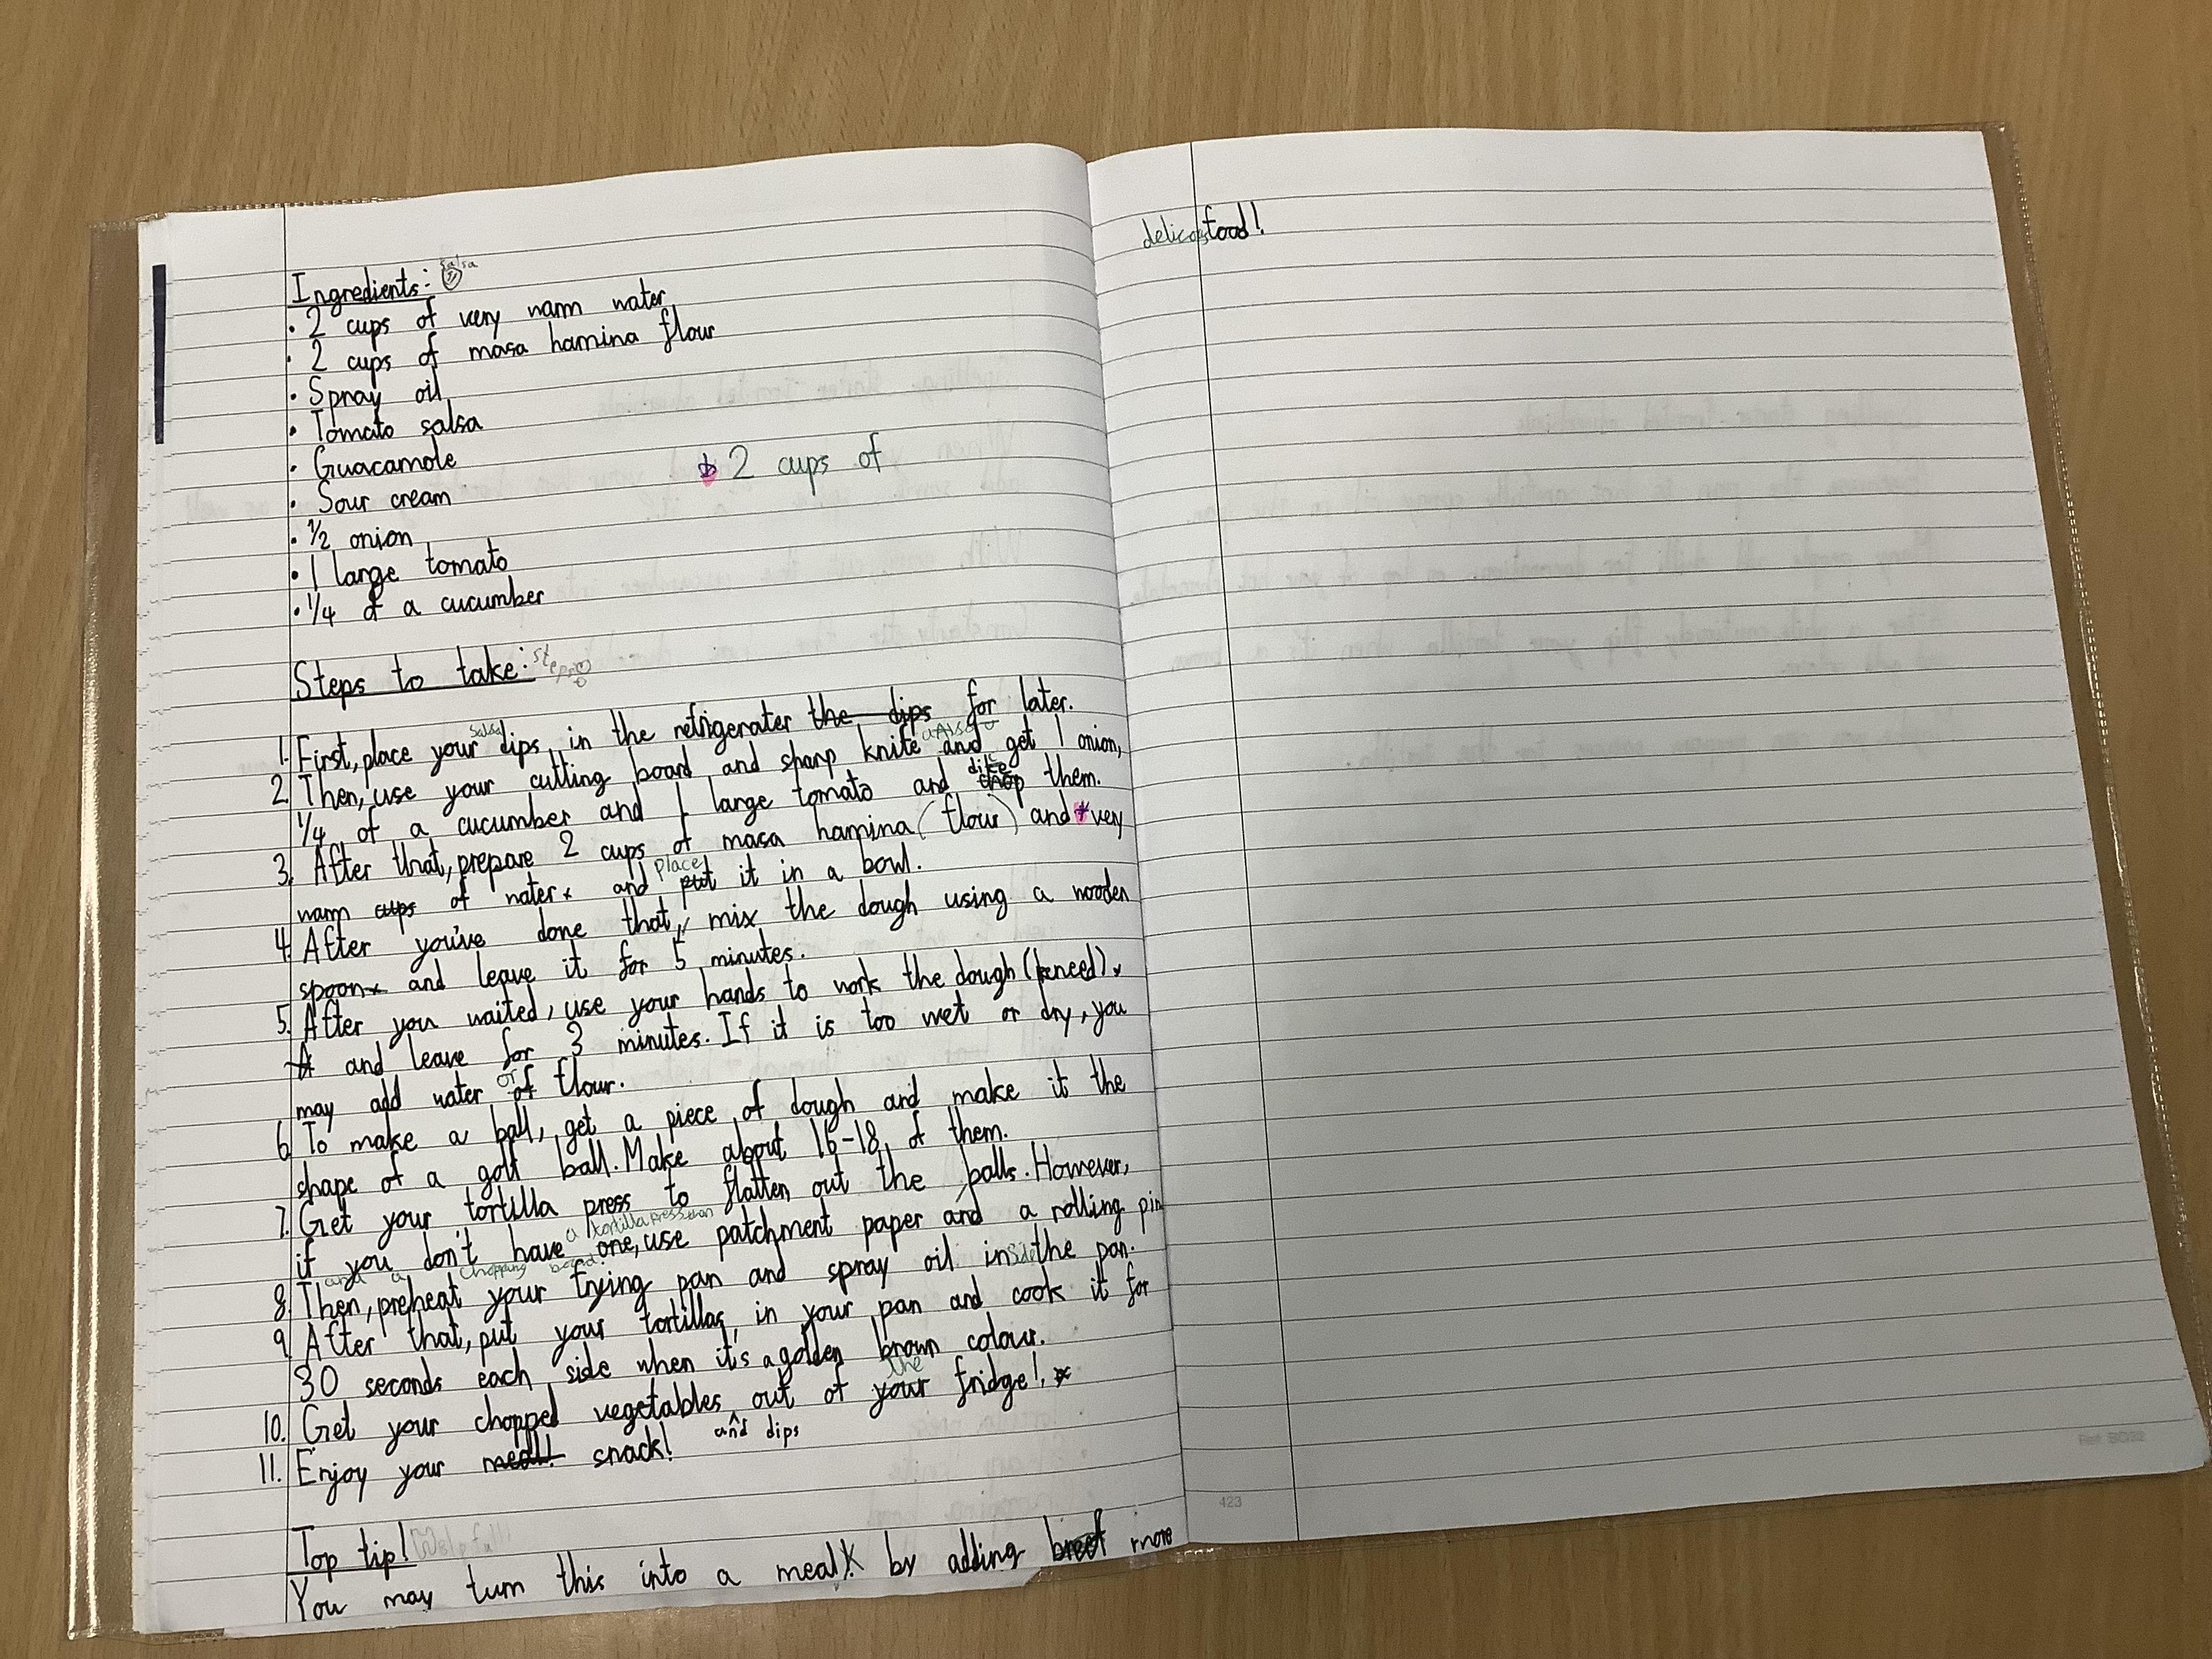 Ingredients: salsa
• 2 cups of very warm water
• 2 cups of masa hamina flour
• Spray oil
• Tomato salsa
• Guacamole
• Sour cream
2 cups of
• 1/2 onion
• 1 large tomato
• 1/4 of a cucumber
Steps to take:
1. First, place your salsa dips in the refrigerater the dips for later.
2. Then, use your cutting board and sharp knife and get 1 onion,
1/4 of a cucumber and 1 large tomato and dice chop them.
3. After that, prepare 2 cups of masa hamina (flour) and * very
warm cups of water and place put it in a bowl.
4. After you've done that, mix the dough using a wooden
spoon and leave it for 5 minutes.
5. After you waited, use your hands to work the dough (kneed)
and leave for 3 minutes. If it is too wet or dry, you
may add water or of flour.
6. To make a ball, get a piece of dough and make it the
shape of a golf ball. Make about 16-18 of them.
7. Get your tortilla press to flatten out the balls. However,
if you don't have a tortilla press one, use patchment paper and a rolling pin
and a chopping board.
8. Then, preheat your frying pan and spray oil inside the pan.
9. After that, put your tortillas in your pan and cook it for
30 seconds each side when it's a golden brown colour.
10. Get your chopped vegetables and dips out of the your fridge!
11. Enjoy your meal! snack!
Top tip!
You may turn this into a meal by adding more
delicous food!
423